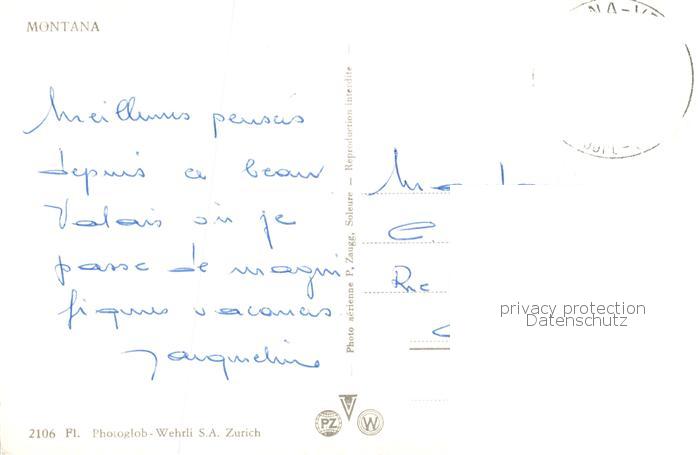 MONTANA
Meilleures pensées
depuis ce beau
Valais où je
passe de magni
fiques vacances
Jacqueline
Photo aérienne P. Zaugg, Soleure — Reproduction interdite
C.
Rue
privacy protection
Datenschutz
PZ
W
2106 Fl. Photoglob-Wehrli S.A. Zurich